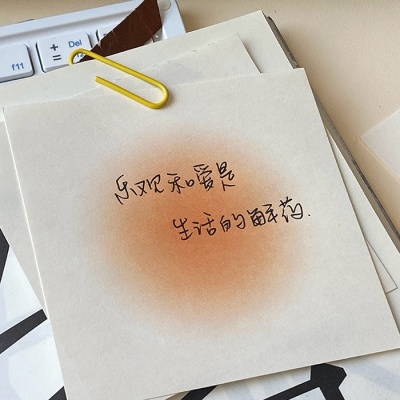 f11
+
=
Del
乐观和爱是
生活的解药.